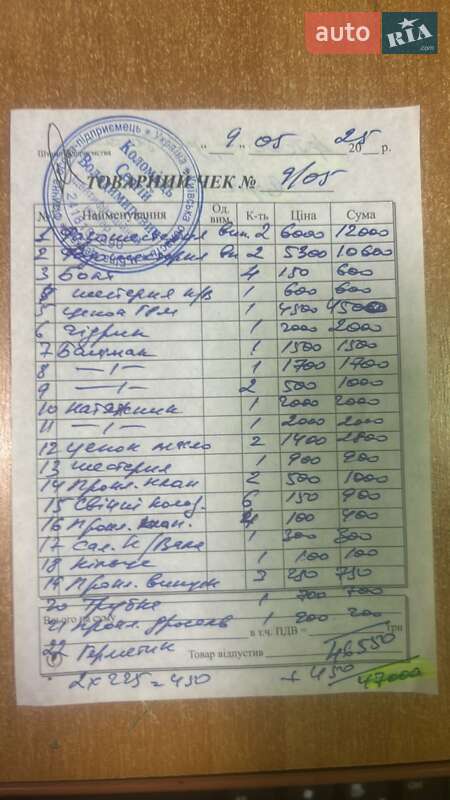 auto RIA.com
" 9 " 05 2025 р.
ТОВАРНИЙ ЧЕК № 9/05
№ Найменування Од. вим. К-ть Ціна Сума
1 вип. 2 6000 12000
2 вп. 2 5300 10600
3 Болт 4 150 600
4 шестерня к/в 1 600 600
5 цепка ГРМ 1 4500 4500
6 Гідрик 1 2000 2000
7 Башмак 1 1500 1500
8 —ı— 1 1700 1700
9 —ı— 2 500 1000
10 Натяжник 1 2000 2000
11 —ı— 1 2000 2000
12 Цепок масло 2 1400 2800
13 шестерня 1 900 900
14 Прокл. клап 2 500 1000
15 Свічні колод. 6 150 900
16 Прокл. клап. 4 100 400
17 Сал. К/Вала 1 300 300
18 Кільце 1 100 100
19 Прокл. випуск 3 250 750
20 Трубка 1 700 700
21 Прокл. дросель 1 200 200
Всього на суму в т.ч. ПДВ – грн
22 Герметик Товар відпустив 46550
2 x 225 = 450 + 450 47000